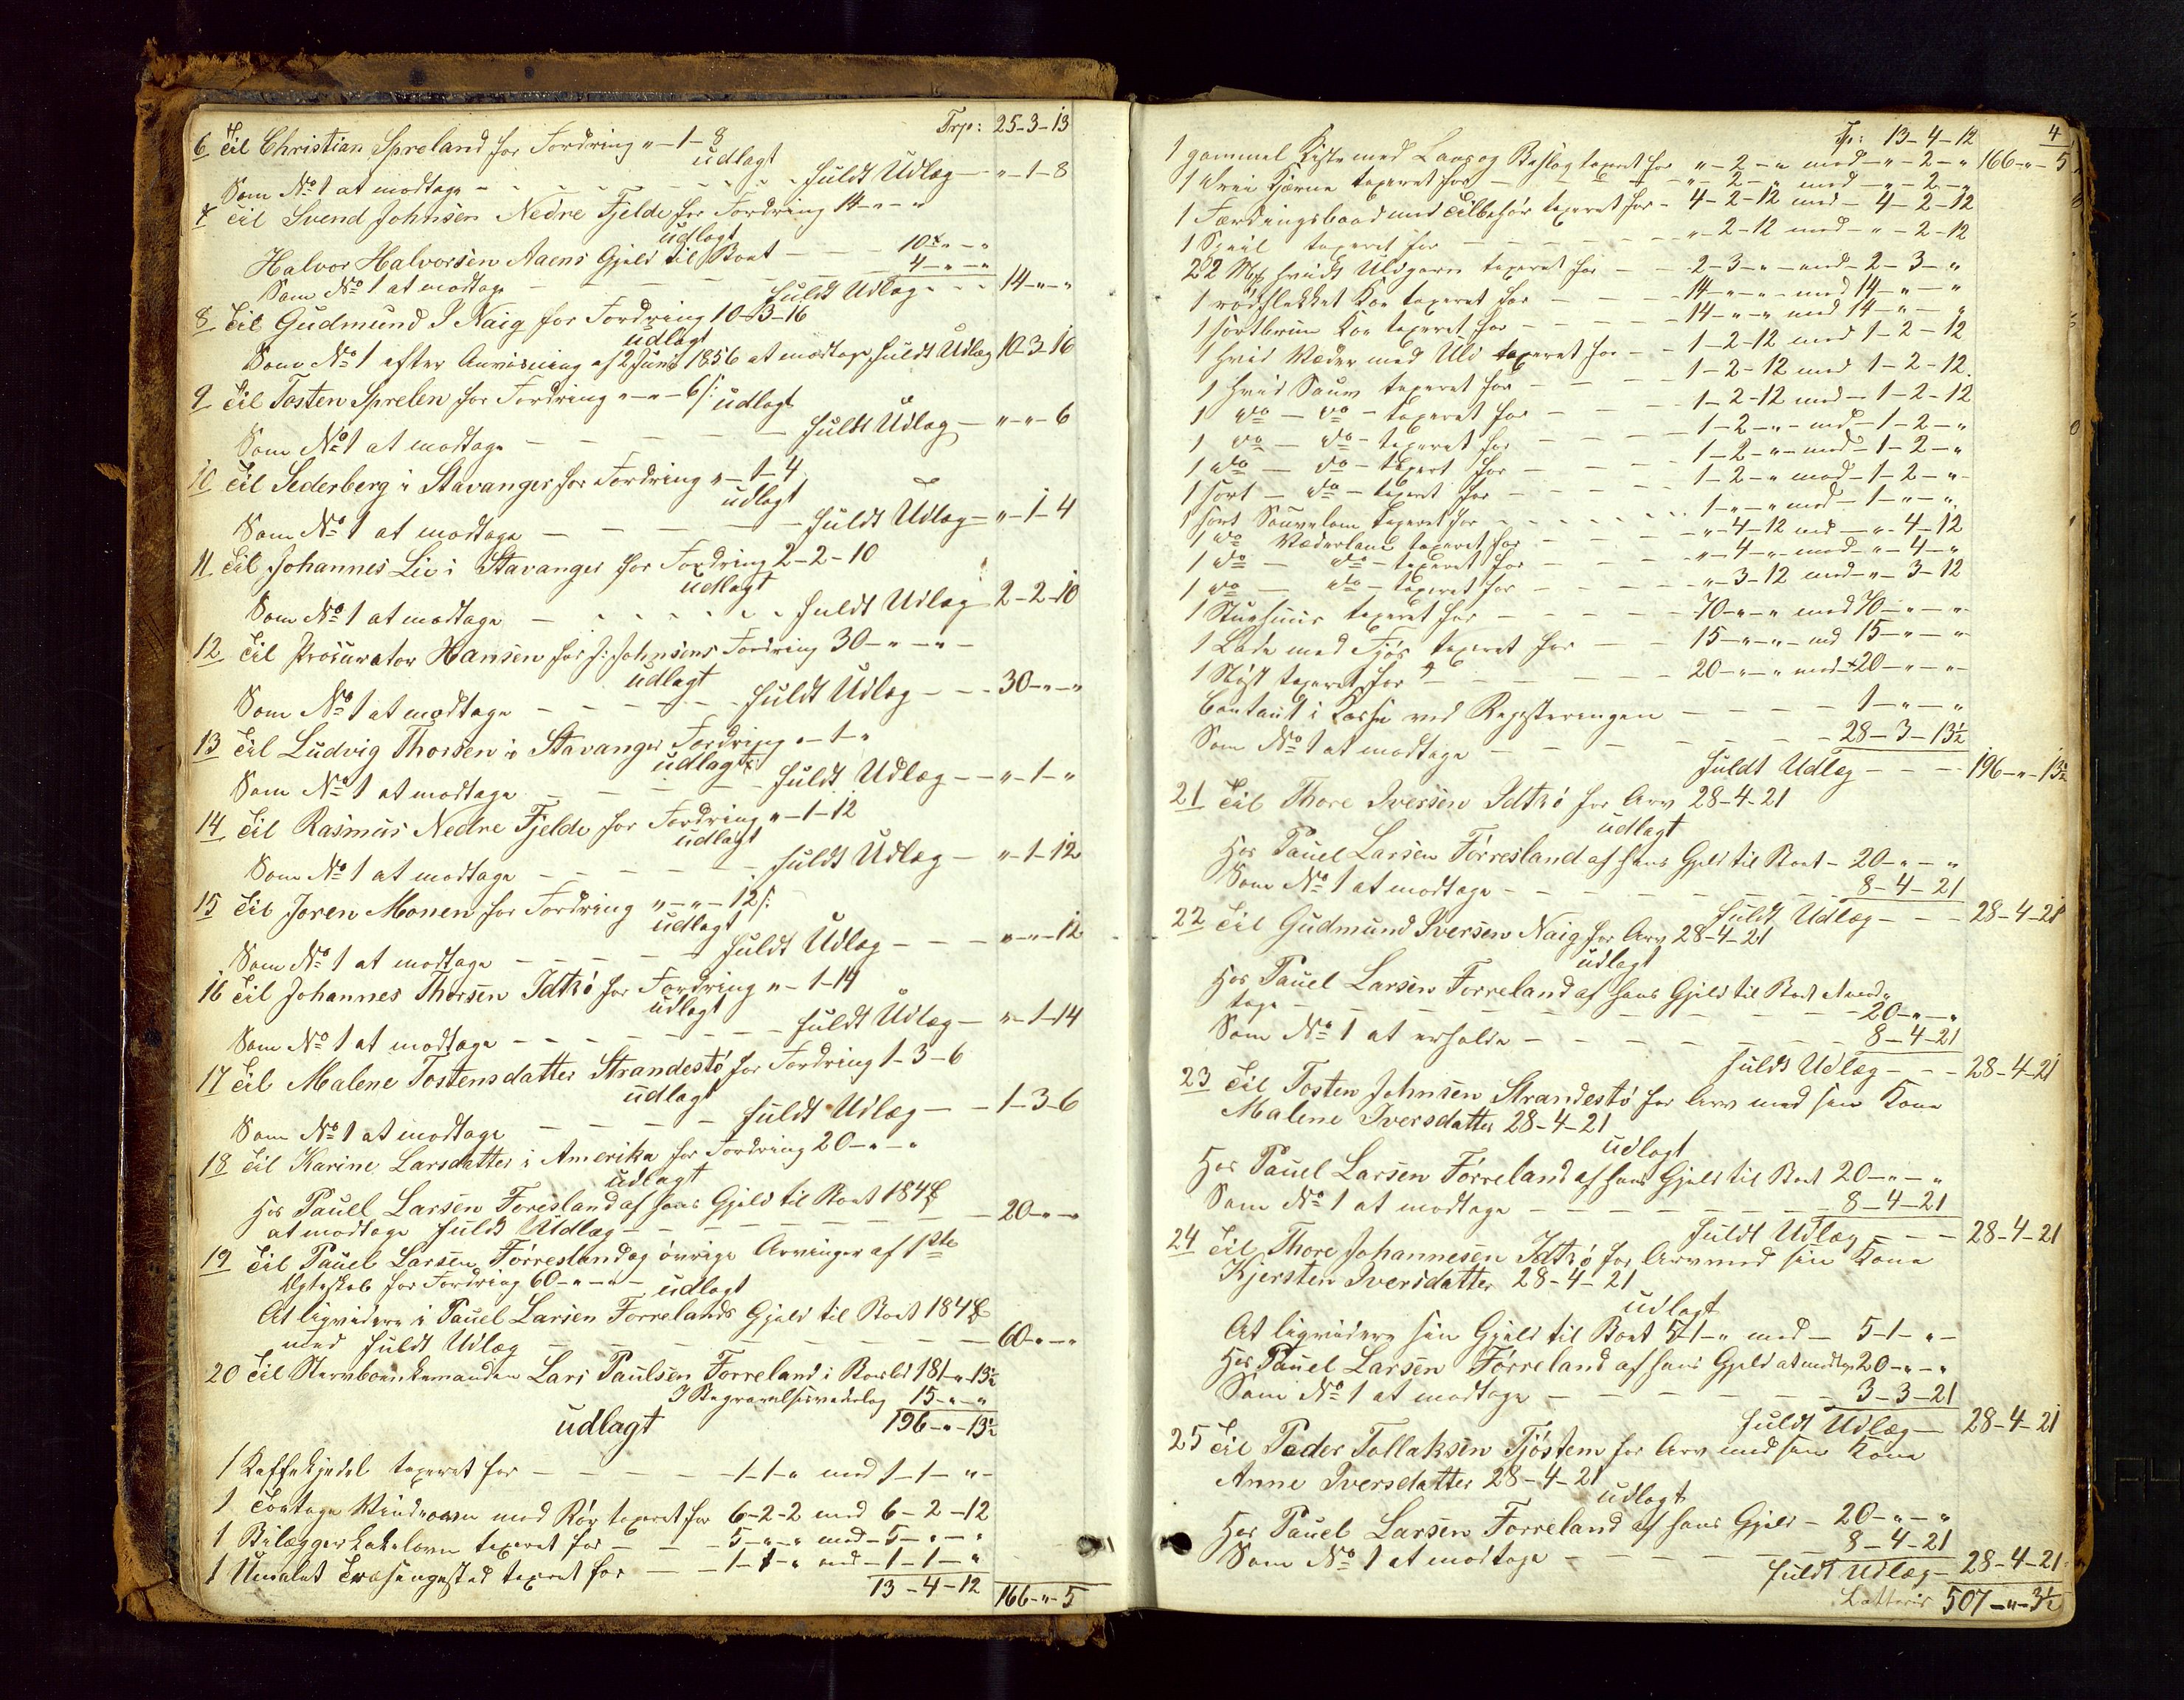 Trp: 25-3-13
6 Til Christian Spreland for Fordring "-1-8
udlagt
Som No 1 at modtage - - - - - - - fuldt Udlæg - "-1-8
7 Til Svend Johnsen Nedre Fjelde for Fordring 14-"-"
udlagt
Halvor Halvorsen Aaens Gjeld til Boet - - 10-"-"
Som No 1 at modtage - - - - 4-"-"
fuldt Udlæg - - - 14-"-"
8 Til Gudmund I Naig for Fordring 10-3-16
udlagt
Som No 1 efter Anvisning af 2 Juni 1856 at modtage fuldt Udlæg 10-3-16
9 Til Tosten Sprelen for Fordring "-"-6 /:
udlagt
Som No 1 at modtage - - - - - fuldt Udlæg - "-"-6
10 Til Sederberg i Stavanger for Fordring "-1-4
udlagt
Som No 1 at modtage - - - - fuldt Udlæg - "-1-4
11 Til Johannes Lie i Stavanger for Fordring 2-2-10
udlagt
Som No 1 at modtage - - - - - - fuldt Udlæg 2-2-10
12 Til Procurator Hansen for J: Johnsens Fordring 30-"-"-
udlagt
Som No 1 at modtage - - - - - fuldt Udlæg - - - 30-"-"
13 Til Ludvig Thorsen i Stavanger Fordring "-1-"
udlagt
Som No 1 at modtage - - - - - fuldt Udlæg - - "-1-"
14 Til Rasmus Nedre Fjelde for Fordring "-1-12
udlagt
Som No 1 at modtage - - - - - fuldt Udlæg - "-1-12
15 Til Joren Monen for Fordring "-"-12 /:
udlagt
Som No 1 at modtage - - - - - fuldt Udlæg - - - "-"-12
16 Til Johannes Thorsen Idtsö for Fordring "-1-14
udlagt
Som No 1 at modtage - - - - - - fuldt Udlæg - "-1-14
17 Til Malene Tostensdatter Strandestö for Fordring 1-3-6
udlagt
Som No 1 at modtage - - - - - fuldt Udlæg - - 1-3-6
18 Til Karine Larsdatter i Amerika for Fordring 20-"-"
udlagt
Hos Pauel Larsen Förresland af hans Gjeld til Boet 184
at modtage fuldt Udlæg - - - - - - - - 20-"-"
19 Til Pauel Larsen Förresland og övrige Arvinger af 1ste
Ægteskab for Fordring 60-"-"-
udlagt
At liqvidere i Pauel Larsen Forrelands Gjeld til Boet 184
med fuldt Udlæg - - - - - - - - 60-"-"
20 Til Stervboenkemanden Lars Paulsen Forreland i Boeslod 181-"-13½
I Begravelsesvederlag 15-"-"
udlagt 196-"-13½
1 Kaffekjedel taxeret for - - - - - 1-1-" med 1-1-"-
1 Toetages Vindovn med Rör taxeret for 6-2-2 med 6-2-12
1 Bilægger Kakelovn taxeret for - - - 5-"-" med - 5-"-"
1 Umalet Træsengested taxeret for - - 1-1-" med - 1-1-"
13-4-12 166-"-5
4
Tp: 13-4-12
1 gammel Kiste med Laas og Beslag taxeret for "-2-" med "-2-" 166-"-5
1 dreie Kjerne taxeret for - - - "-2-" med - "-2-"
1 Færdingsbaad med Tilbehör taxeret for - 4-2-12 med - 4-2-12
1 Speil taxeret for - - - - - - "-2-12 med - "-2-12
22 Mk hvidt Uldgarn taxeret for - - 2-3-" - med - 2-3-"
1 rödflekket Koe taxeret for - - - 14-"-" - med 14-"-"
1 sortbrun Koe taxeret for - - - - 14-"-" med 14-"-"
1 hvid Væder med Uld taxeret for - - 1-2-12 med 1-2-12
1 hvid Sauv taxeret for - - - - 1-2-12 med 1-2-12
1 do - do - taxeret for - - - - 1-2-12 med - 1-2-12
1 do - do - taxeret for - - - - 1-2-" - med - 1-2-"
1 do - do - taxeret for - - - - 1-2-" - med - 1-2-"
1 sort - do - taxeret for - - - - 1-2-" med - 1-2-"
1 sort Sauvelam taxeret for - - - - 1-"-" med - 1-"-"
1 do Væderlam taxeret for - - - "-4-12 med - "-4-12
1 do - do - taxeret for - - - "-4-" - med - "-4-"
1 do - do - taxeret for - - - "-3-12 med - "-3-12
1 Stuehuus taxeret for - - - - 70-"-" med 70-"-"
1 Lade med Fjös taxeret for - - 15-"-" - med 15-"-"
1 Nöst taxeret for - - - - - 20-"-" med - 20-"-"
Contant i Kasse ved Registeringen - - - - 1-"-"
Som No 1 at modtage - - - - - - - 28-3-13½
fuldt Udlæg - - - 196-"-13½
21 Til Thore Iversen Idtsö for Arv 28-4-21
udlagt
Hos Pauel Larsen Förresland af hans Gjeld til Boet - 20-"-"
Som No 1 at modtage - - - - - - - 8-4-21
fuldt Udlæg - - - 28-4-21
22 Til Gudmund Iversen Naig for Arv 28-4-21
udlagt
Hos Pauel Larsen Forreland af hans Gjeld til Boet at mod-
tage - - - - - - - - - - 20-"-"
Som No 1 at erholde - - - - - - 8-4-21
fuldt Udlæg - - - 28-4-21
23 Til Tosten Johnsen Strandestö for Arv med sin Kone
Malene Iversdatter 28-4-21
udlagt
Hos Pauel Larsen Förreland af hans Gjeld til Boet 20-"-"
Som No 1 at modtage - - - - - - - 8-4-21
fuldt Udlæg - - - 28-4-21
24 Til Thore Johannesen Idtsö for Arv med sin Kone
Kjersten Iversdatter 28-4-21
udlagt
At liqvidere sin Gjeld til Boet 5-1-" med - 5-1-"-
Hos Pauel Larsen Förreland af hans Gjeld at modtage 20-"-"
Som No 1 at modtage - - - - - - 3-3-21
fuldt Udlæg - 28-4-21
25 Til Peder Tollaksen Tjöstem for Arv med sin Kone
Anne Iversdatter 28-4-21
udlagt
Hos Pauel Larsen Forreland af hans Gjeld - 20-"-"
Som No 1 at modtage - - - - - 8-4-21
fuldt Udlæg - 28-4-21
Latteris 507-"-3½